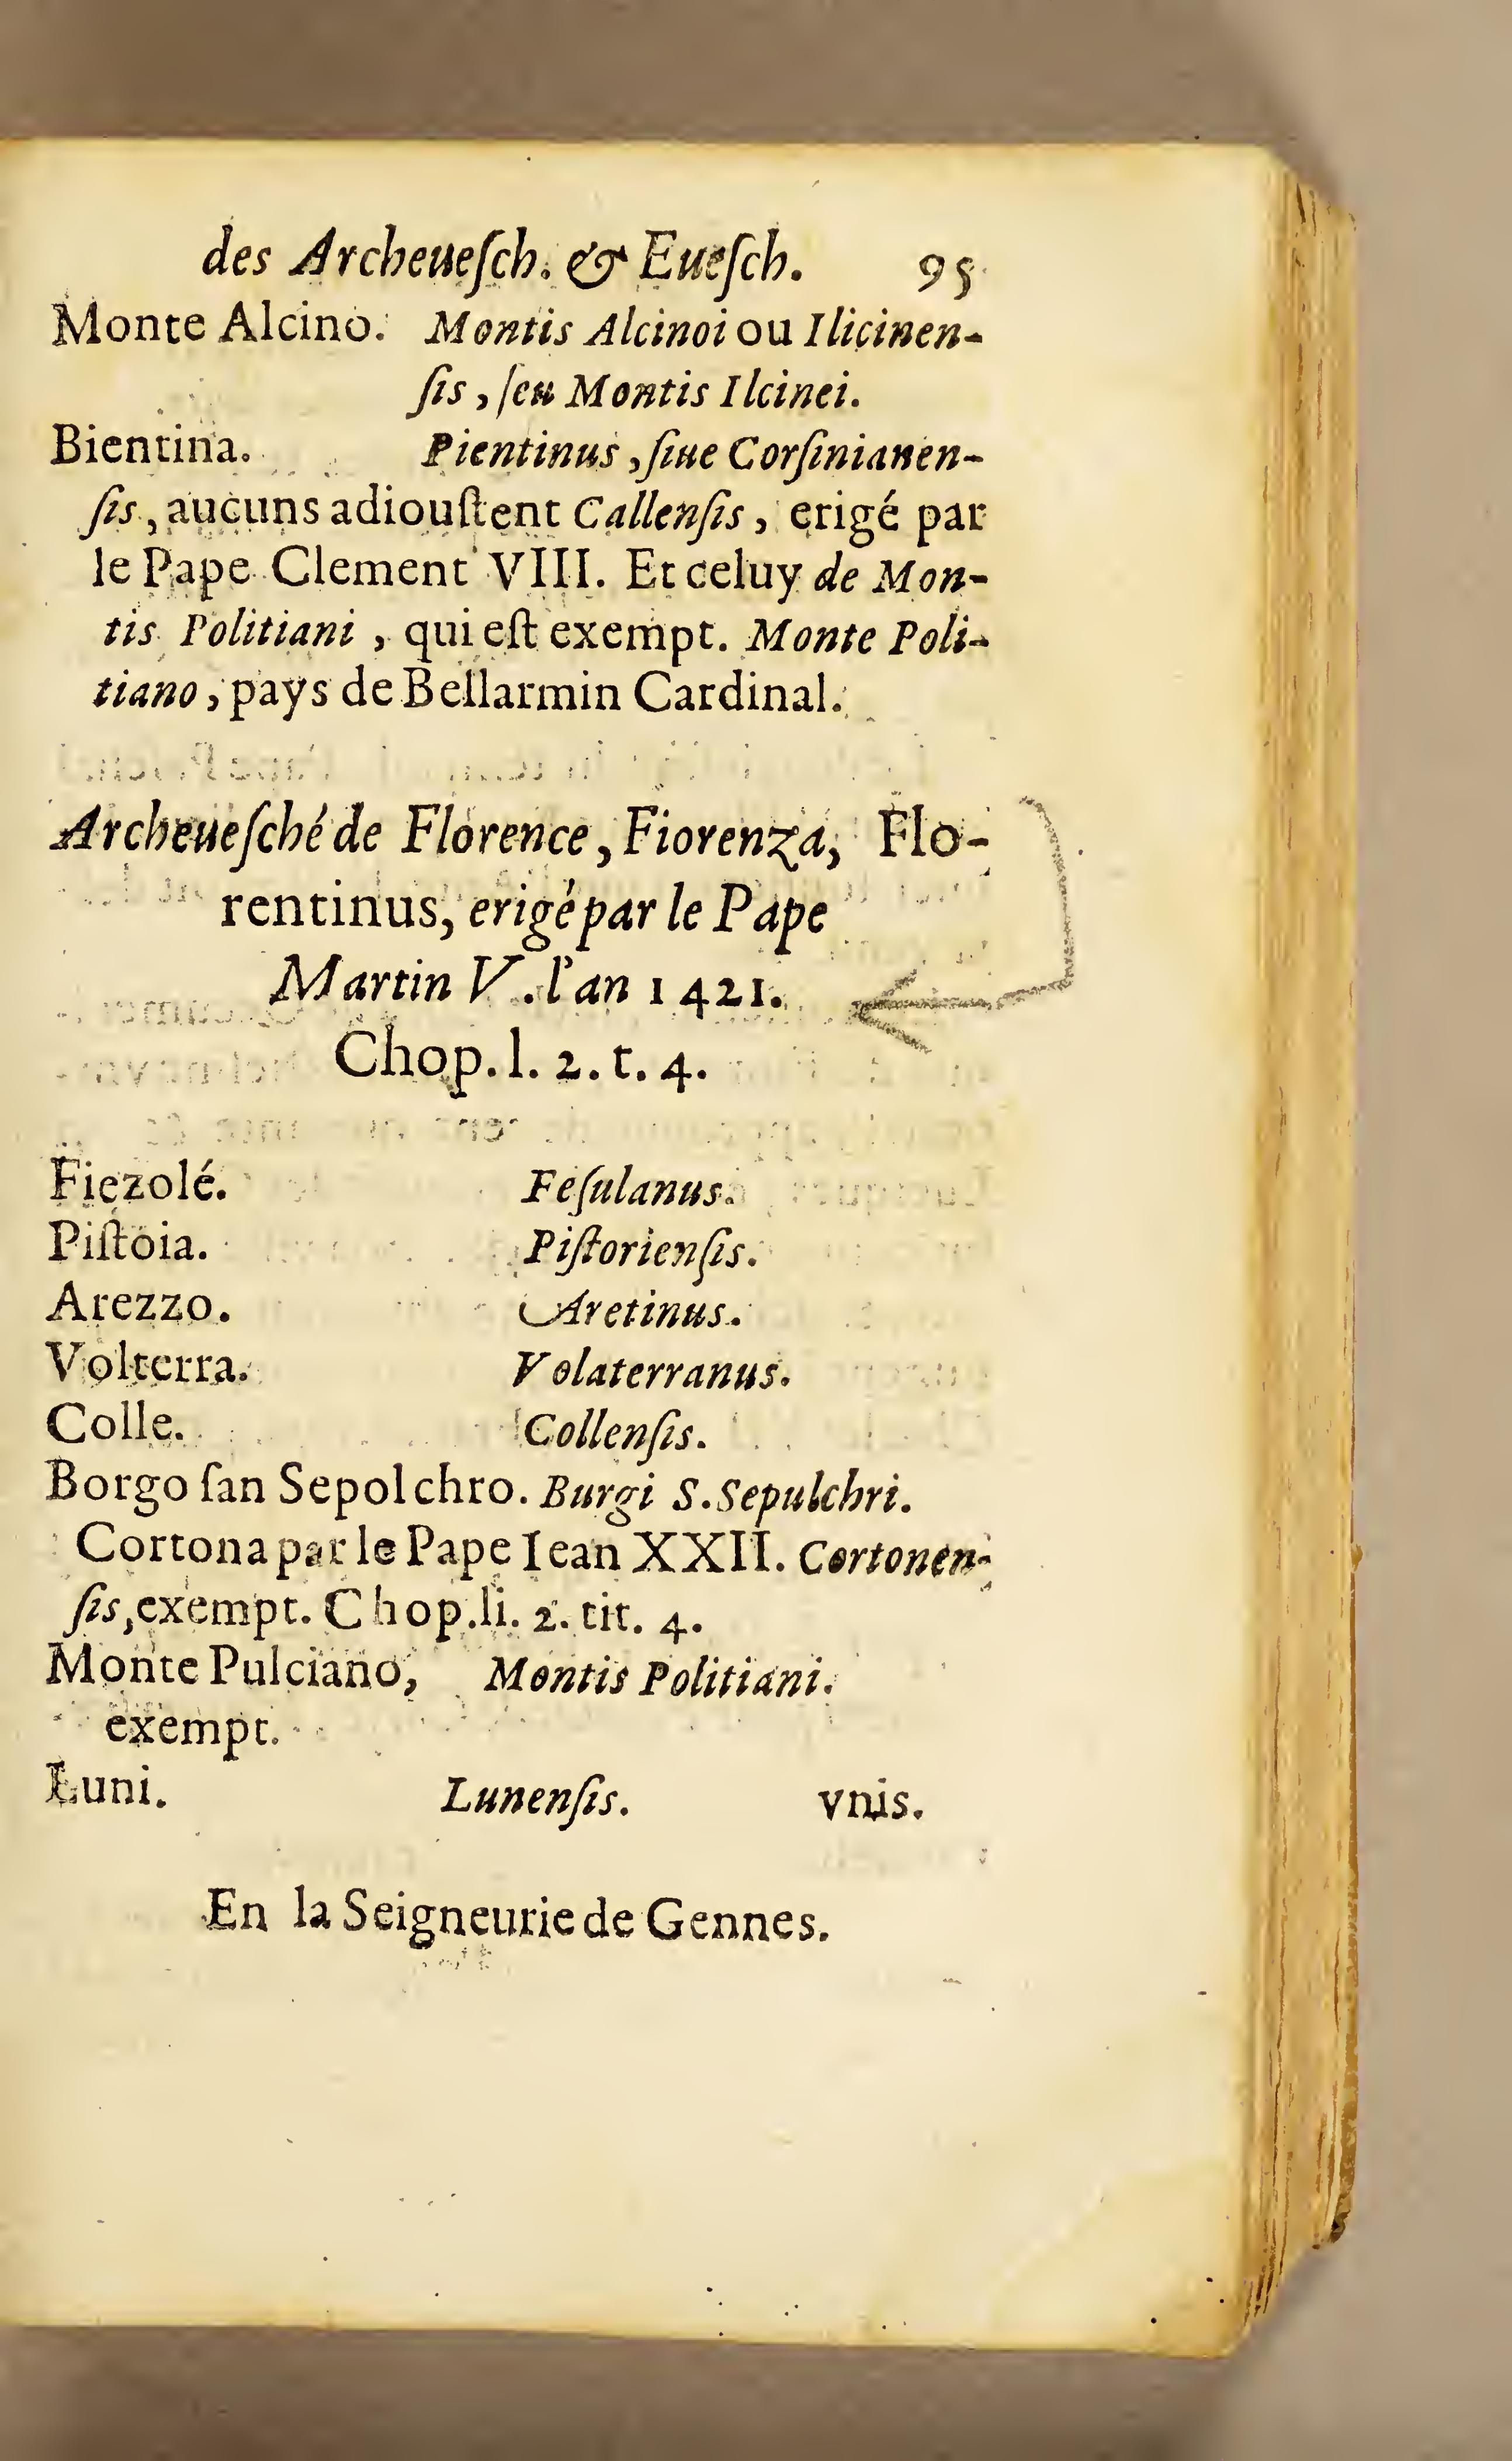 des Archeueſch. & Eueſch. 95
Monte Alcino. Montis Alcinoi ou Ilicinen-
ſis, ſeu Montis Ilcinei.
Bientina. Pientinus, ſiue Corſinianen-
ſis, aucuns adiouſtent Callenſis, erigé par
le Pape Clement VIII. Et celuy de Mon-
tis Politiani, qui eſt exempt. Monte Poli-
tiano, pays de Bellarmin Cardinal.
Archeueſché de Florence, Fiorenza, Flo-
rentinus, erigé par le Pape
Martin V. l'an 1421.
Chop. l. 2. t. 4.
Fiezolé. Feſulanus.
Piſtoia. Piſtorienſis.
Arezzo. Aretinus.
Volterra. Volaterranus.
Colle. Collenſis.
Borgo ſan Sepolchro. Burgi S. Sepulchri.
Cortona par le Pape Iean XXII. Cortonen-
ſis, exempt. Chop. li. 2. tit. 4.
Monte Pulciano, Montis Politiani.
exempt.
Luni. Lunenſis. vnis.
En la Seigneurie de Gennes.